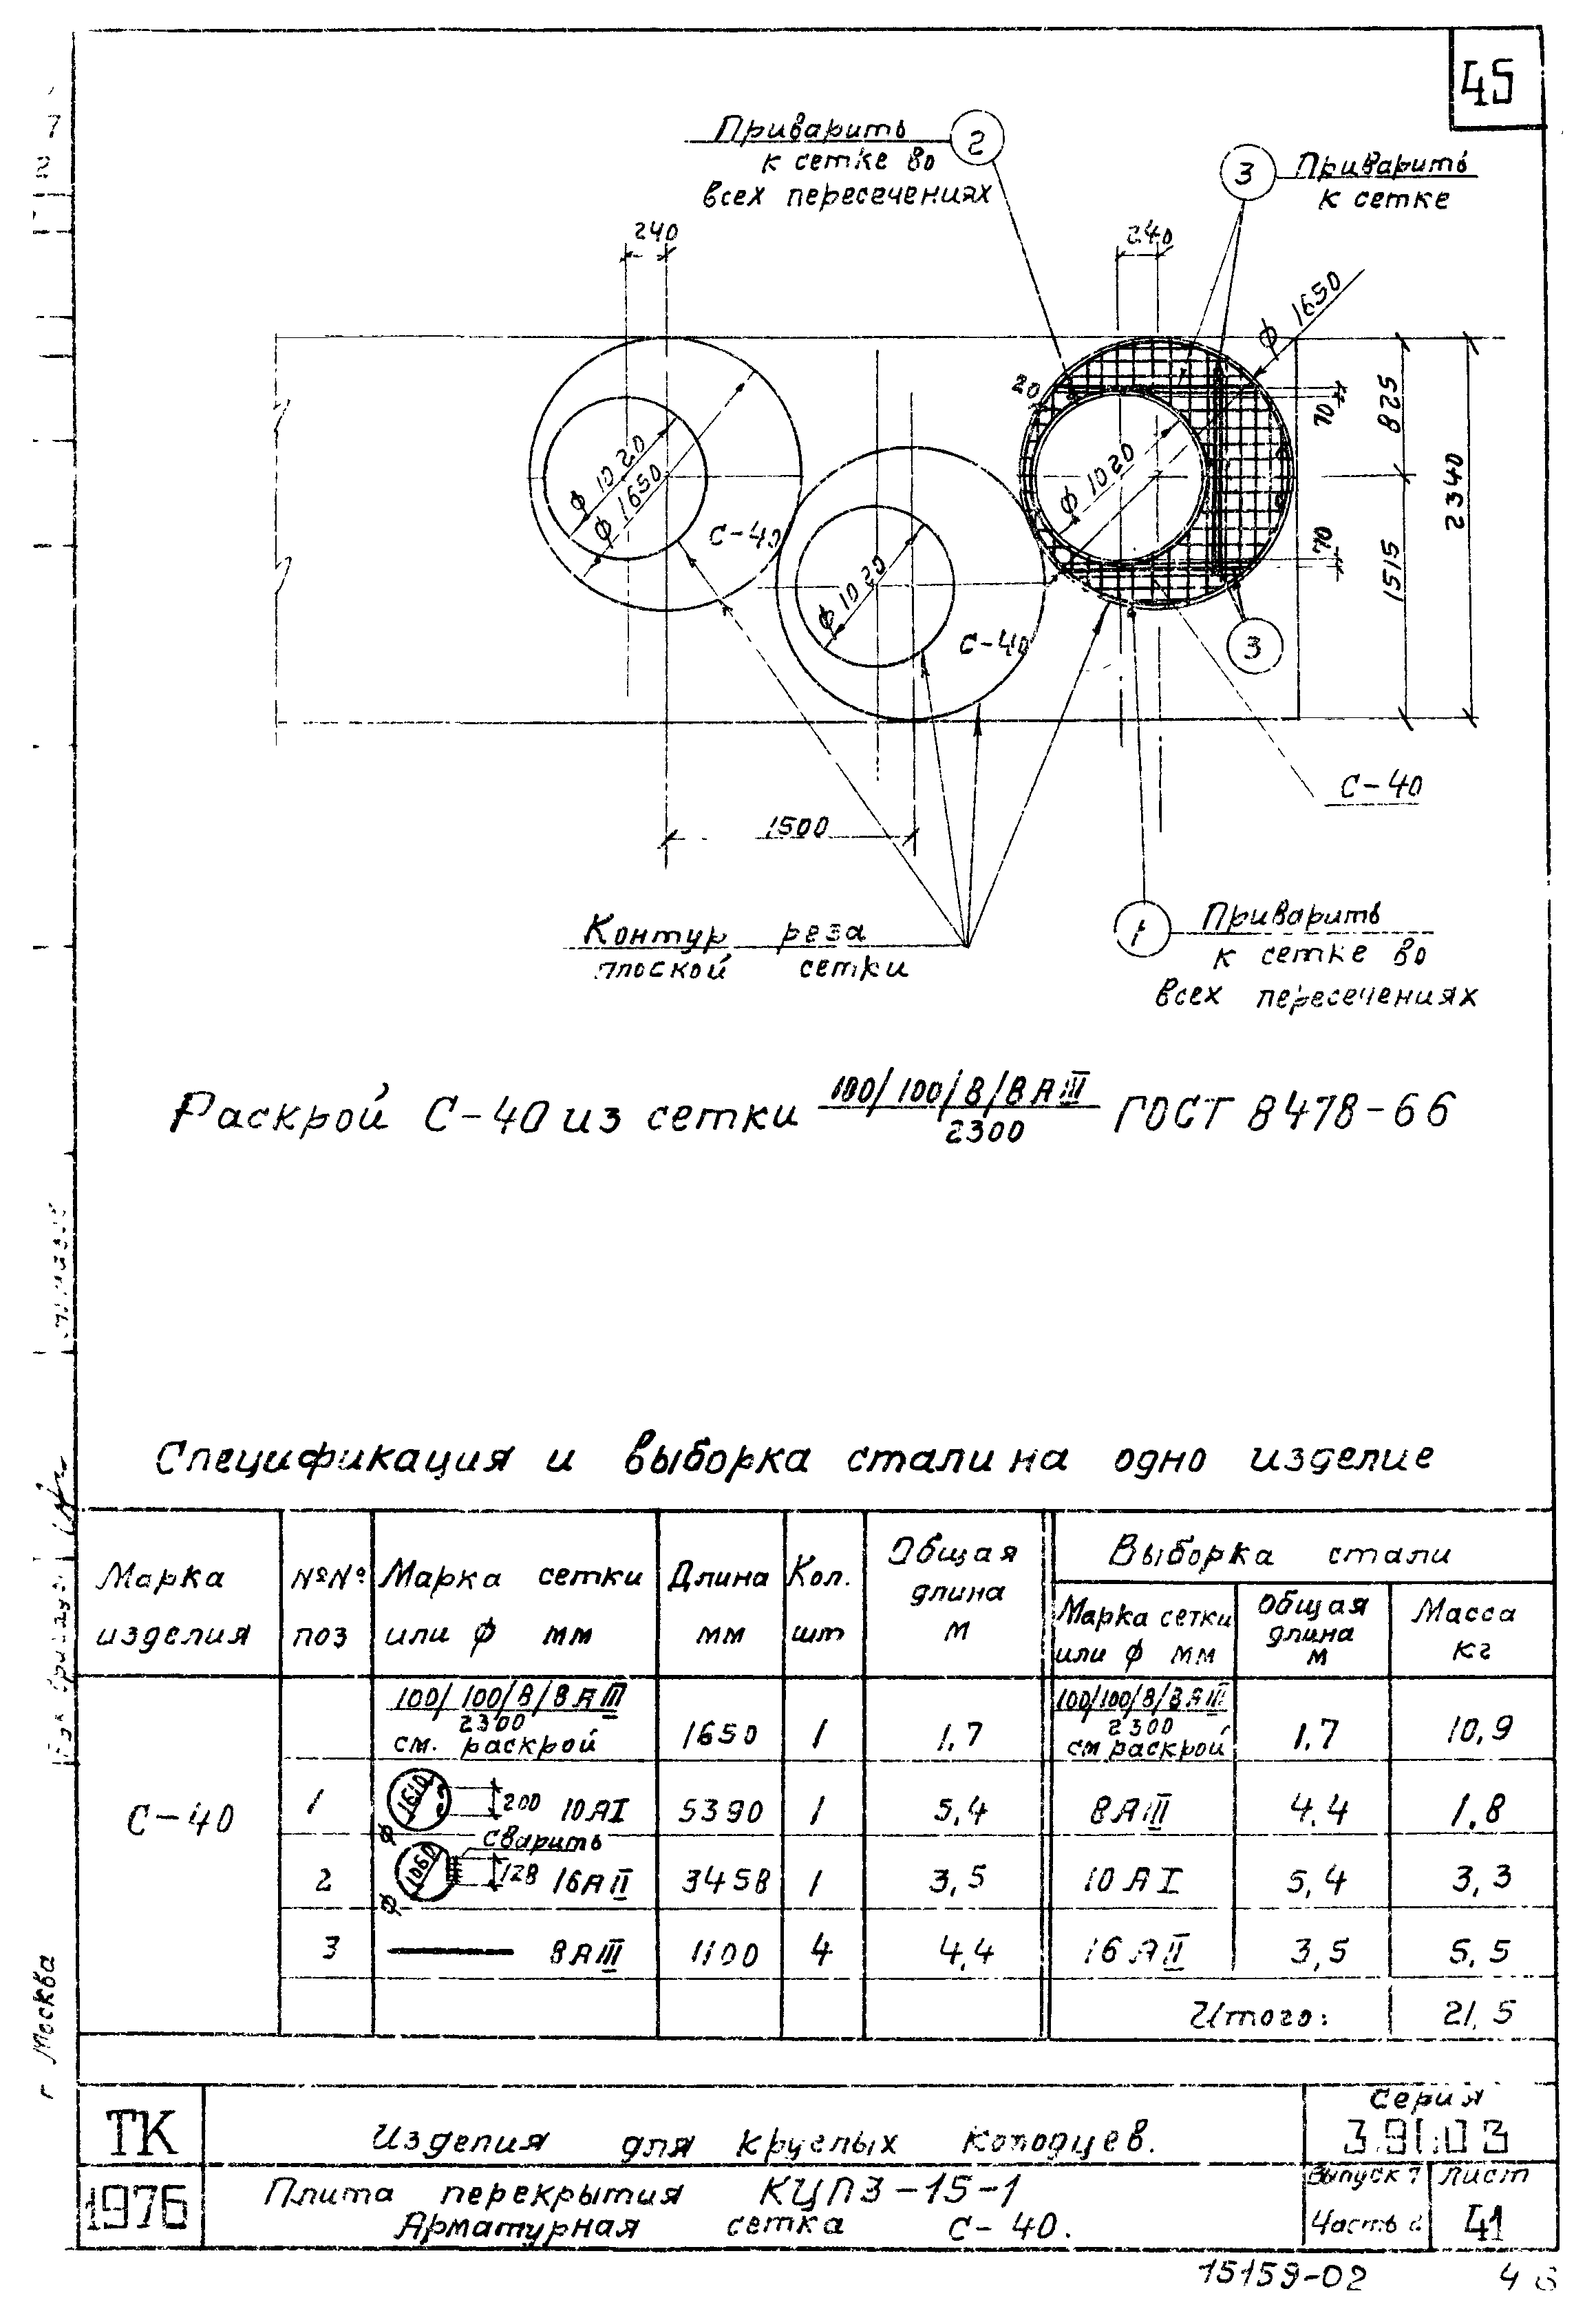 45
Приварить 2
к сетке во
всех пересечениях
3 Приварить
к сетке
240
240
ф 1650
20
70
825
2340
ф 1020
ф 1650
С-40
ф 1020
С-40
ф 1020
70
1515
3
С-40
1500
Контур реза
плоской сетки
1 Приварить
к сетке во
всех пересечениях
Раскрой С-40 из сетки 100/100/8/8 АIII / 2300 ГОСТ 8478-66
Спецификация и выборка стали на одно изделие
Марка изделия
№№ поз
Марка сетки или ф мм
Длина мм
Кол. шт
Общая длина м
Выборка стали
Марка сетки или ф мм
Общая длина м
Масса кг
С-40
100/100/8/8 АIII / 2300 см. раскрой 1650 1 1,7 100/100/8/8 АIII / 2300 см раскрой 1,7 10,9
1 ф 1610 200 10АI 5390 1 5,4 8АIII 4,4 1,8
сварить
2 ф 1060 128 16АII 3458 1 3,5 10АI 5,4 3,3
3 8АIII 1100 4 4,4 16АII 3,5 5,5
Итого: 21,5
г Москва
ТК
1976
Изделия для круглых колодцев.
Плита перекрытия КЦП3-15-1
Арматурная сетка С-40.
Серия
3.91:03
Выпуск 7
Часть 2
Лист
41
15159-02